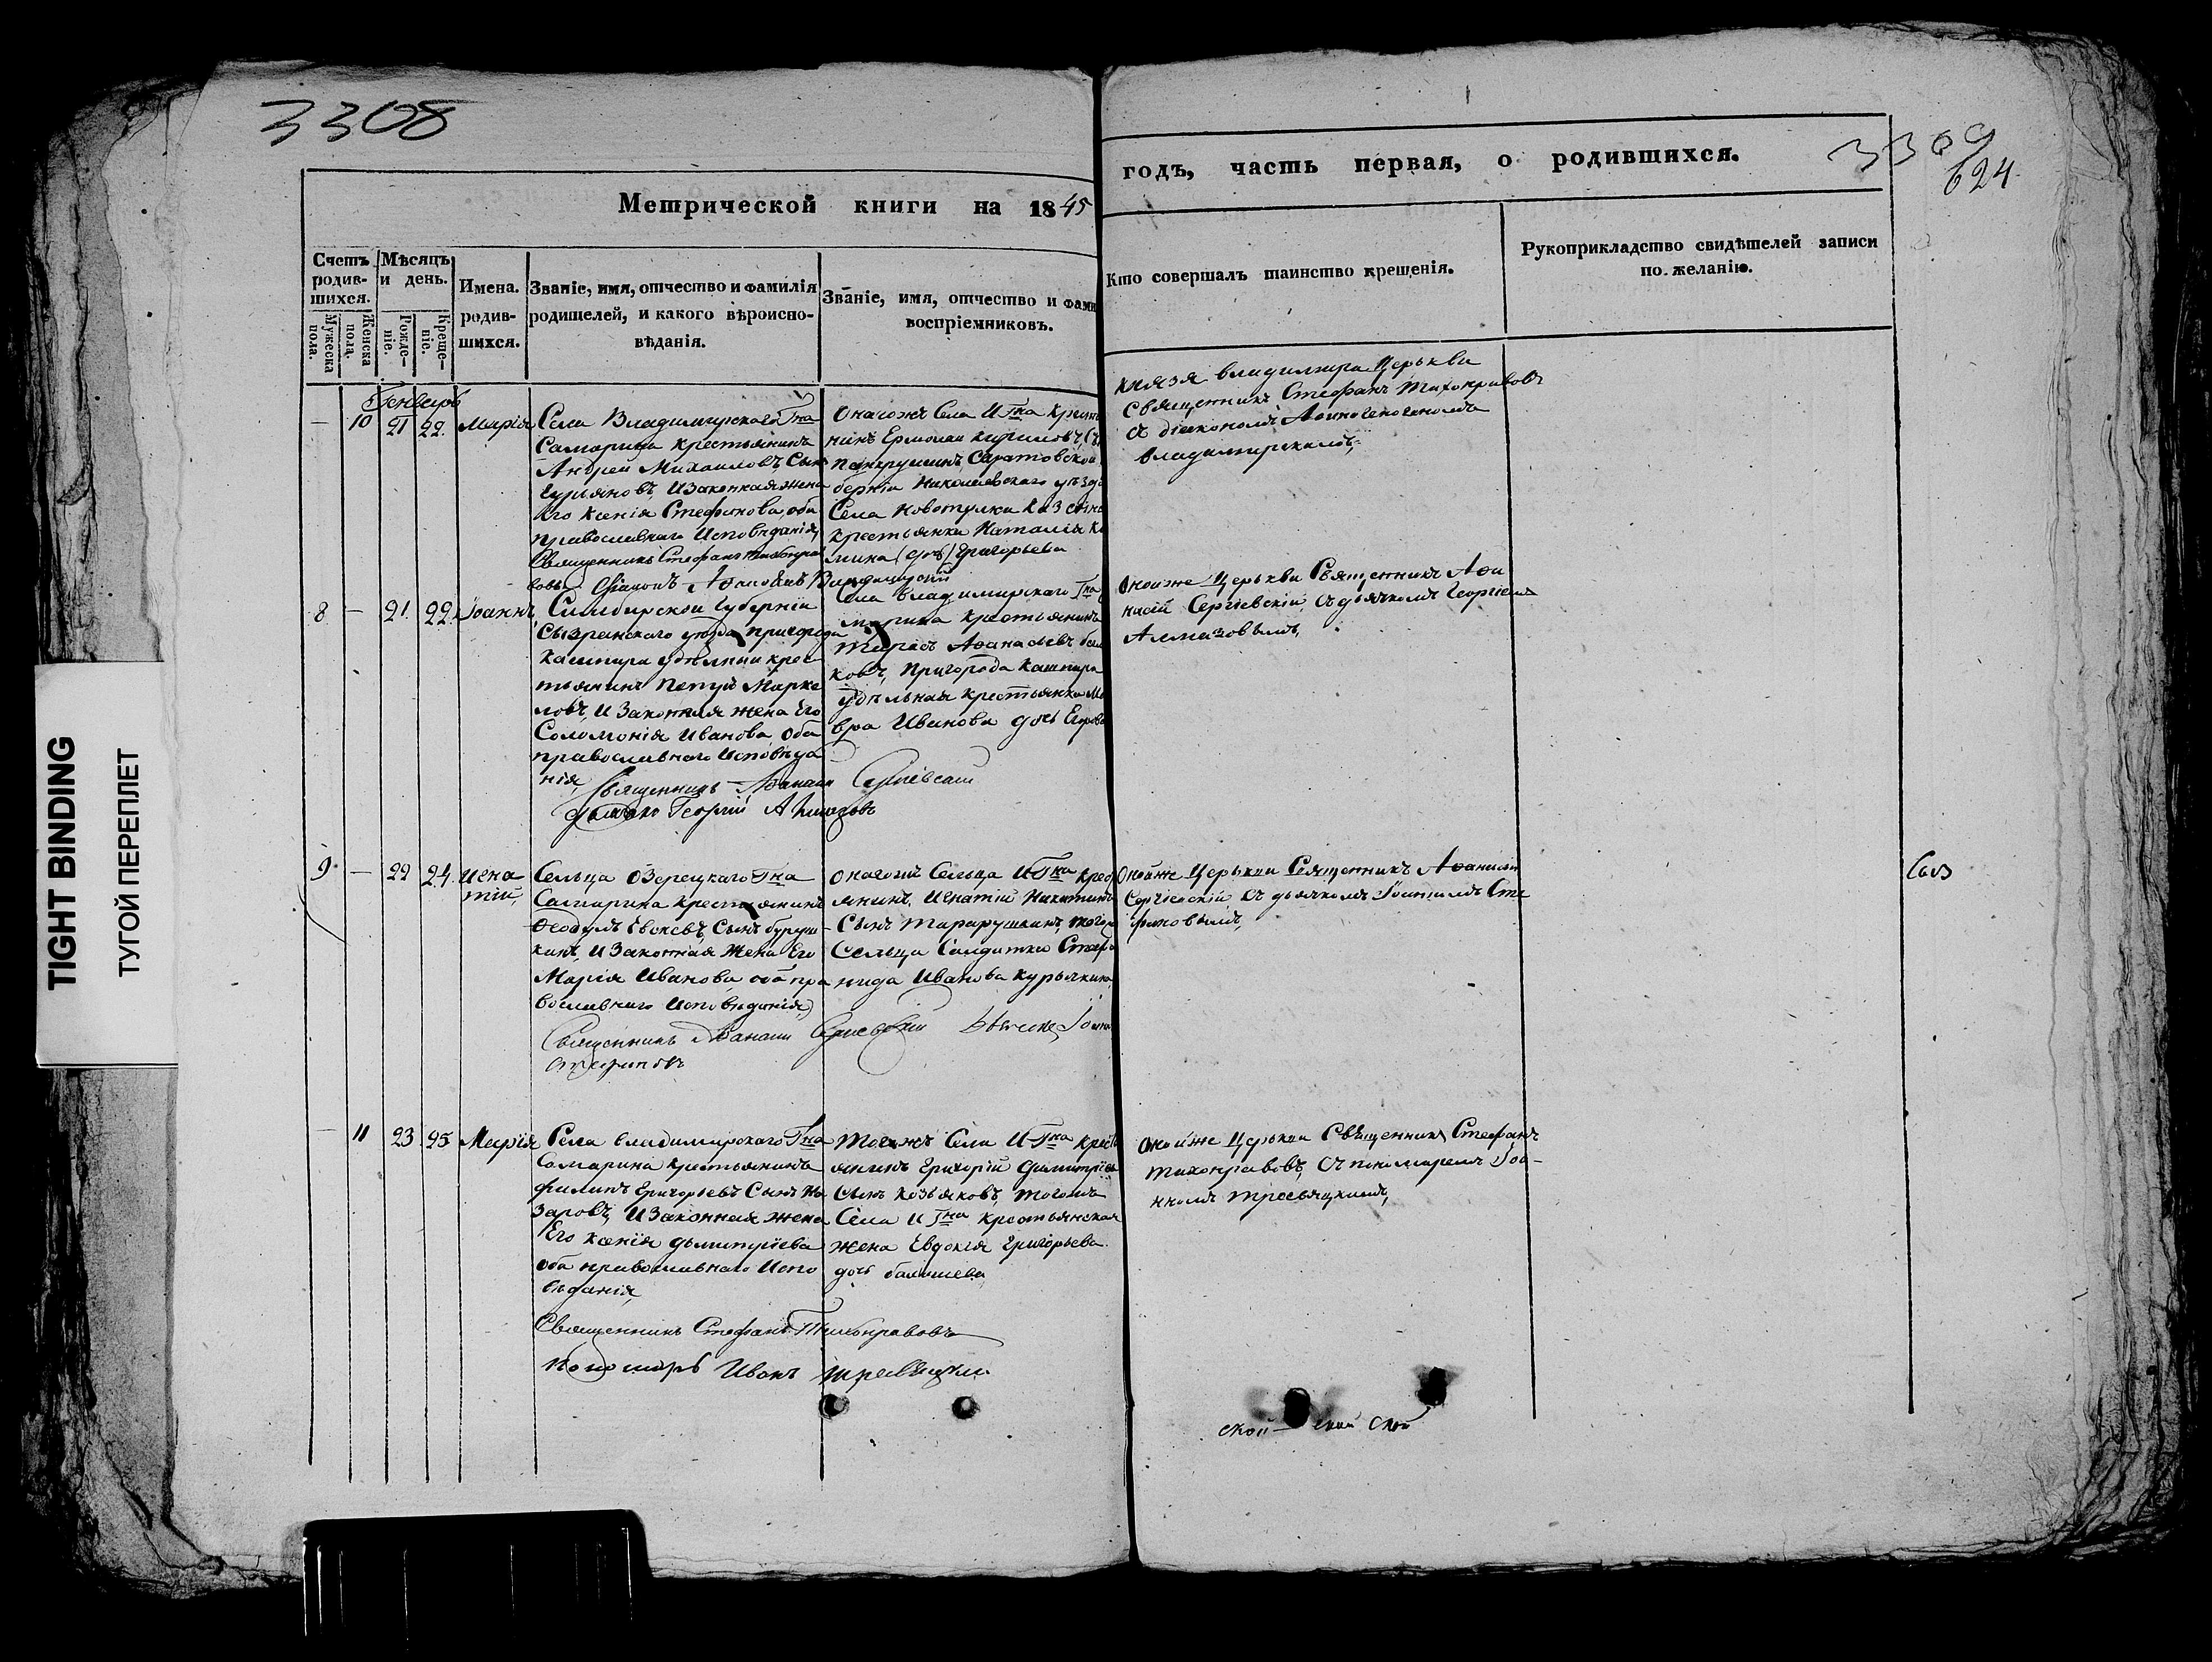 3308
Метрической книги на 1845
годъ, часть первая, о родившихся.
3309
624
Счетъ родив-шихся.
Мужеска пола.
Женска пола.
Мѣсяцъ и день.
Рожде-ніе.
Креще-ніе.
Имена.
родив-
шихся.
Званіе, имя, отчество и фамилія
родителей, и какого вѣроиспо-
вѣданія.
Званіе, имя, отчество и фами
воспріемниковъ.
Кто совершалъ таинство крещенія.
Рукоприкладство свидѣтелей записи
по желанію.
Генварь
— 10 21 22. Марія
Села Владимирскаго Гна
Самарина крестьянинъ
Андрей Михаиловъ, Сынъ
Гурьяновъ, И Законная жена
Его Ксенія Стефанова, оба
православнаго Исповѣданія,
Священникъ Стефанъ Тихонра
вовъ
Онагожъ Села И Гна крест
нинъ Ермолаи Кириловъ,
Панкрушинъ, Саратовской
берніи Николаевскаго уѣзд
Села Новотулки
крестьянка Наталья
мина (дочь) Григорьева
Князя Владимира Церькви
Священникъ Стефанъ Тихонравовъ
Съ діакономъ
Владимирскимъ,
8 — 21. 22. Іоаннъ,
Симбирской Губерніи
Сызранскаго уѣзда, пригорода
Кашпира удѣлный крес
тьянинъ Марке
ловъ, И Законная жена Его
Соломонія Иванова, Оба
православнаго Исповѣда
нія,
Священникъ Аѳанаси Сергіевски
Георгій Алмазовъ
Села Владимирскаго Гна
марина Крестьянинъ
Тарасъ Аѳанасьевъ
ковъ, Пригорода Кашпира
Удѣльная крестьянка Ма
вра Иванова дочь Егорова
Онойже Церькви Священникъ Аѳа
насій Сергіевскій, Съ дьячкомъ Георгіемъ
Алмазовымъ,
9. — 22 24. Игна
тій,
Сельца Озерецкаго Гна
Самарина крестьянинъ
Ѳеодулъ Евсеевъ, Сынъ
кинъ, И Законная Жена Его
Марія Иванова, оба пра
вославнаго Исповѣданія,
Священникъ Аѳанаси Сергіевски
Стефановъ
Онагожъ Сельца И Гна крес
янинъ, Игнатій Никитинъ
Сынъ Тарарушкинъ, тогож
Сельца Солдатка Степа
нида Иванова Курычкина
Онойже Церькви Священникъ Аѳанасій
Сергіевскій Съ дьячкомъ Іоанномъ Сте
фановымъ,
— 11 23 25 Марія
Села Владимирскаго Гна
Самарина Крестьянинъ
Филипъ Григорьевъ Сынъ На
заровъ, И Законная жена
Его Ксенія Дьмитріева
оба православнаго Испо
вѣданія,
Священникъ Стефанъ Тихонравовъ
Пономарь Иванъ
Тогожъ Села И Гна крест
янинъ Григорій Димитріев
Сынъ Козьяковъ, тогожъ
Села И Гна крестьянская
жена Евдокія Григорьева
дочь
Онойже Церькви Священникъ Стефанъ
Тихонравовъ, Съ пономаремъ Іоа-
нномъ
ской скій ской
TIGHT BINDING
ТУГОЙ ПЕРЕПЛЕТ